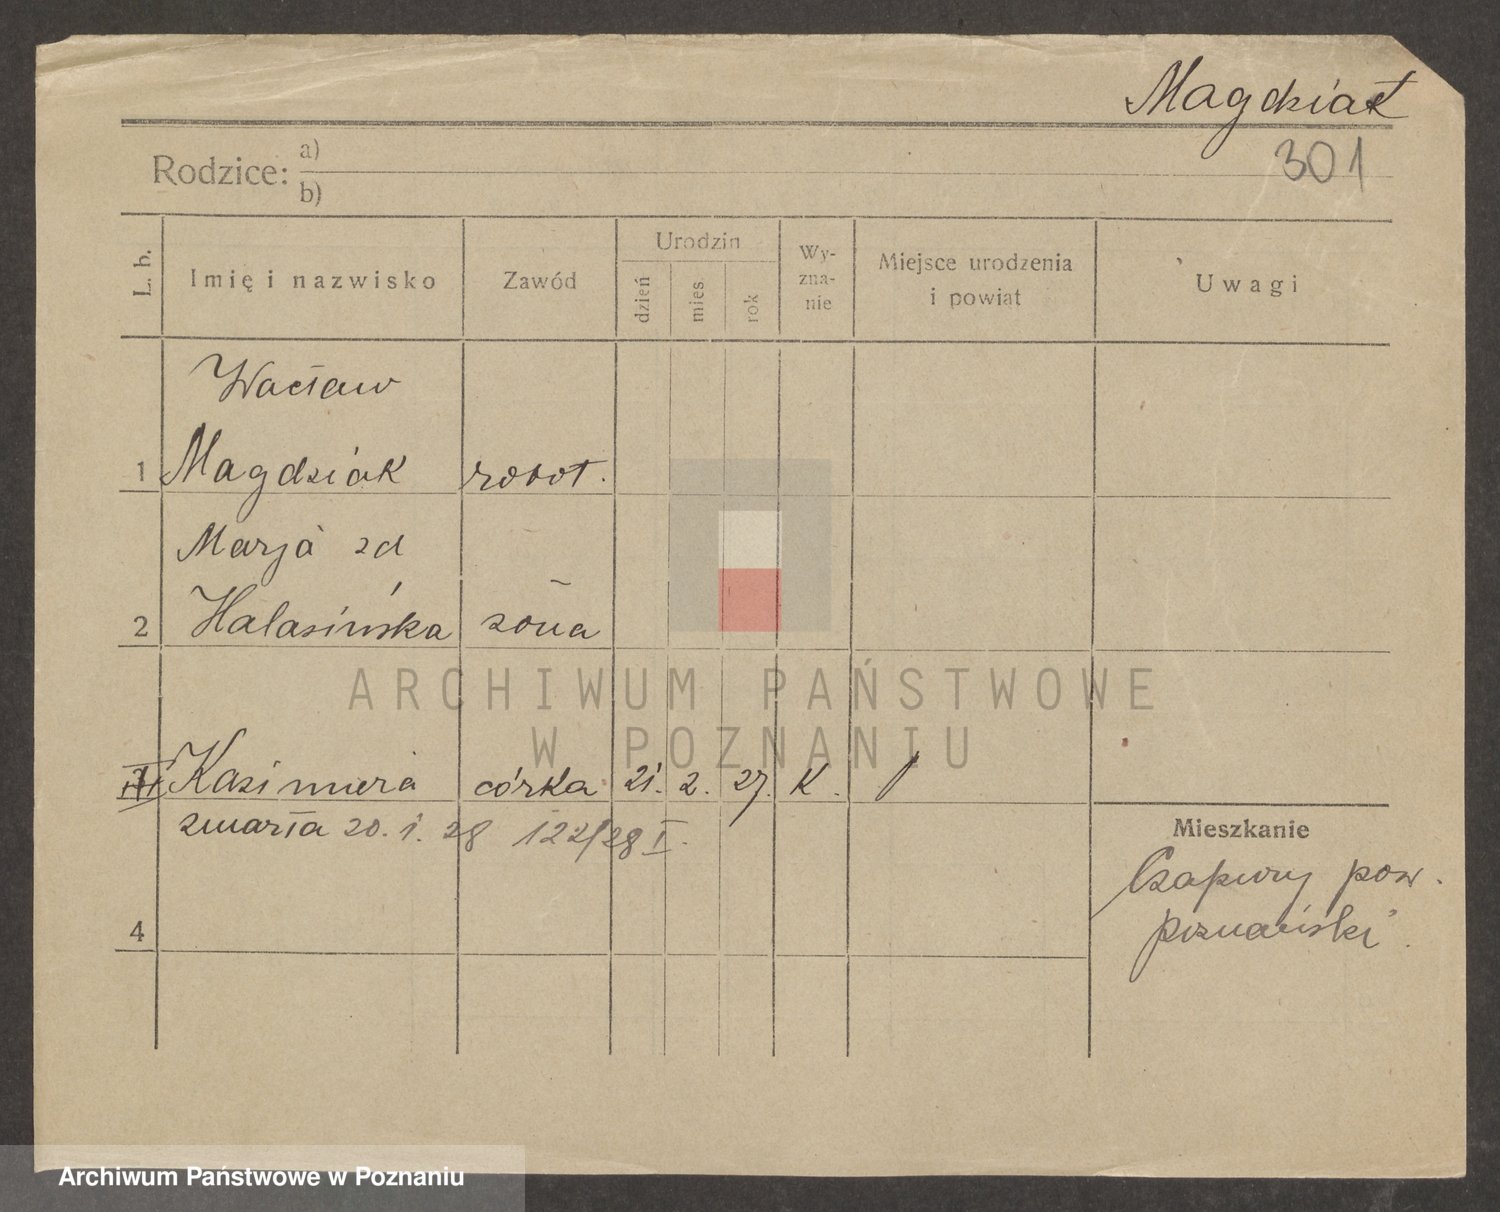 Magdziak
301
Rodzice: a)
b)
L. b.
Imię i nazwisko
Zawód
Urodzin
dzień
mies.
rok
Wy-
zna-
nie
Miejsce urodzenia
i powiat
Uwagi
Wacław
1 Magdziak robot.
Marja zd
2 Halasińska żona
3 Kazimiera córka 21. 2. 27. K.
zmarła 20. 1. 28 122/28 I.
4
Mieszkanie
Czapury pow.
poznański
ARCHIWUM PAŃSTWOWE
W POZNANIU
Archiwum Państwowe w Poznaniu